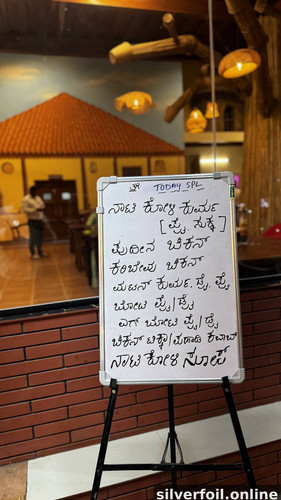 ಶ್ರೀ TODAY SPL
ನಾಟಿ ಕೋಳಿ ಕುರ್ಮ
[ಫ್ರೈ, ಸುಕ್ಕ]
ಪುದೀನ ಚಿಕನ್
ಕರಿಬೇವು ಚಿಕನ್
ಮಟನ್ ಕುರ್ಮ, ಡ್ರೈ, ಫ್ರೈ
ಬೋಟಿ ಫ್ರೈ/ಡ್ರೈ
ಎಗ್ ಬೋಟಿ ಫ್ರೈ/ಡ್ರೈ
ಚಿಕನ್ ಟಿಕ್ಕಾ/ಪಹಾಡಿ ಕಬಾಬ್
ನಾಟಿ ಕೋಳಿ ಸೂಪ್
silverfoil.online